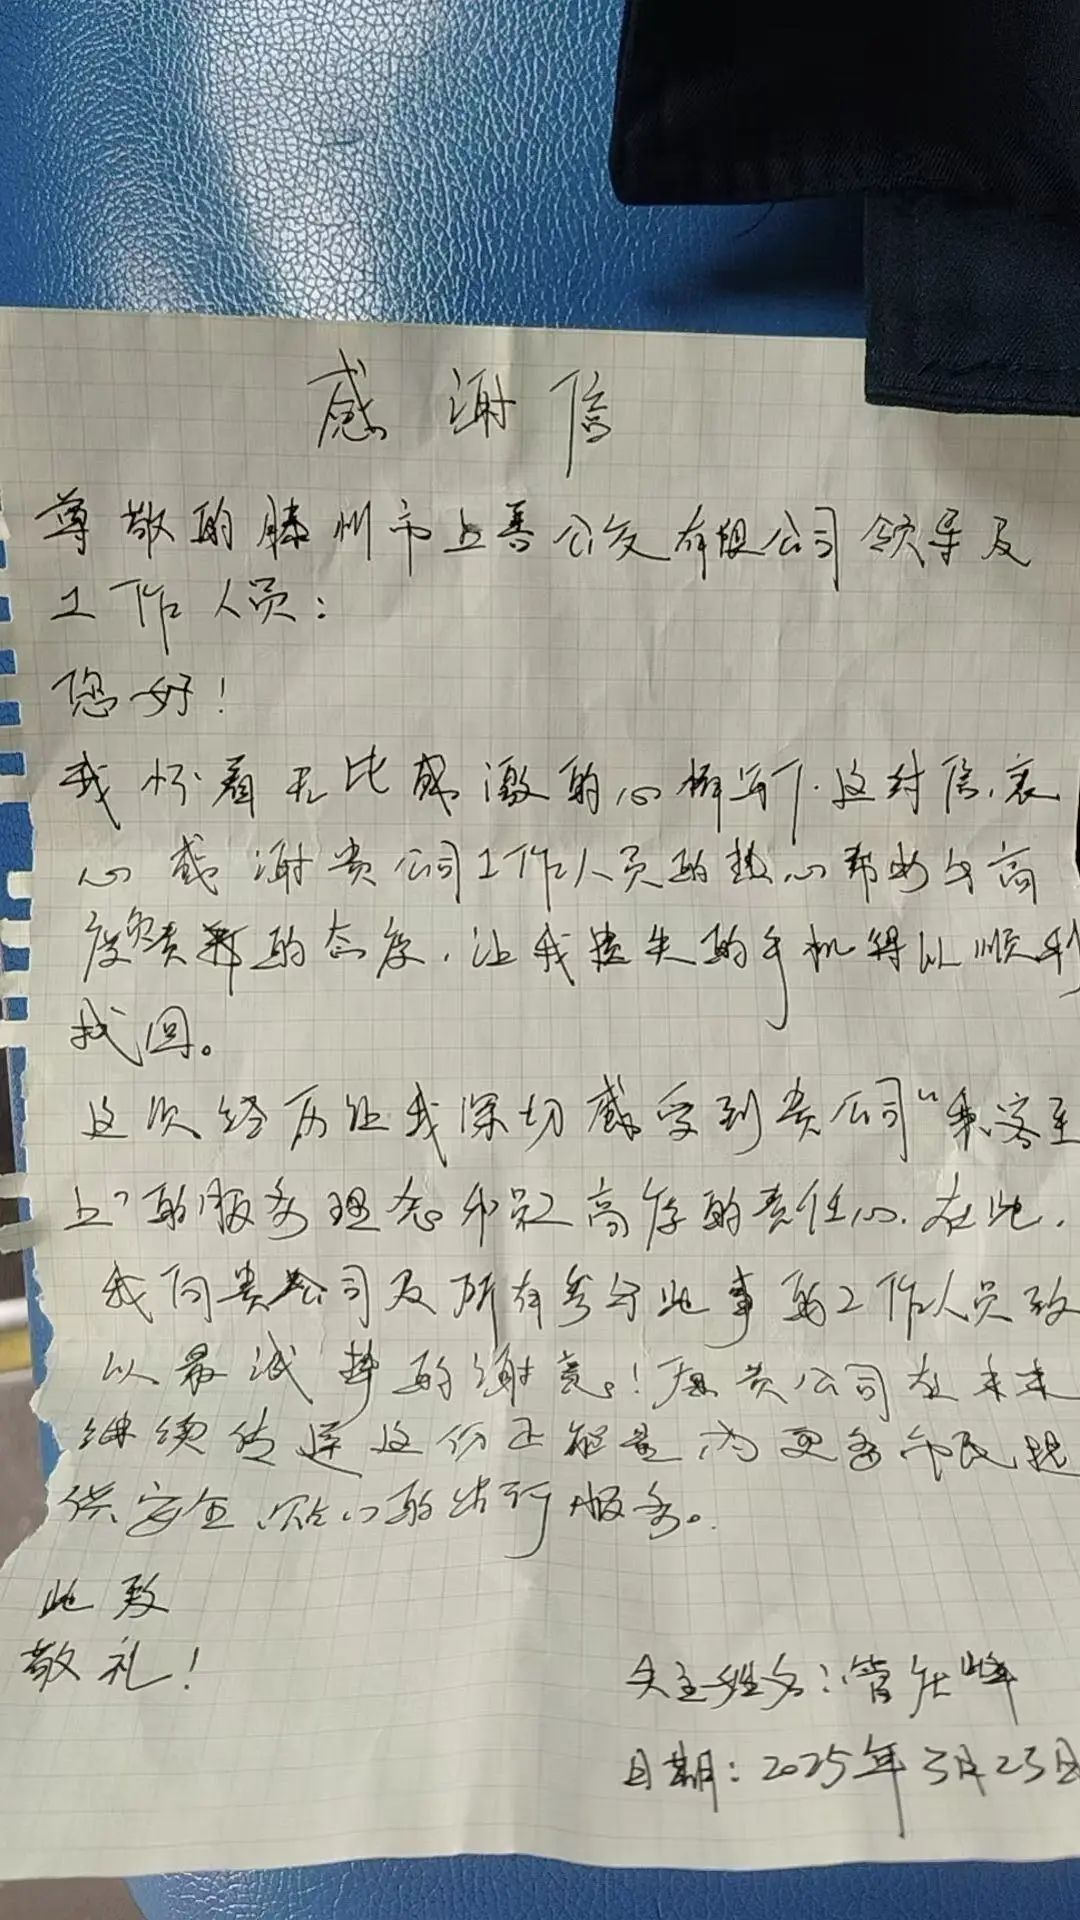 感谢信
尊敬的滕州市上善公交有限公司领导及
工作人员：
您好！
我怀着无比感激的心情写下这封信，衷
心感谢贵公司工作人员的热心帮助与高
度负责的态度，让我遗失的手机得以顺利
找回。
这次经历让我深切感受到贵公司“乘客至
上”的服务理念和员工高度的责任心。在此，
我向贵公司及所有参与此事的工作人员致
以最诚挚的谢意！愿贵公司在未来
继续传递这份正能量为更多市民提
供安全、贴心的出行服务。
此致
敬礼！
失主姓名：管庆峰
日期：2025年3月23日